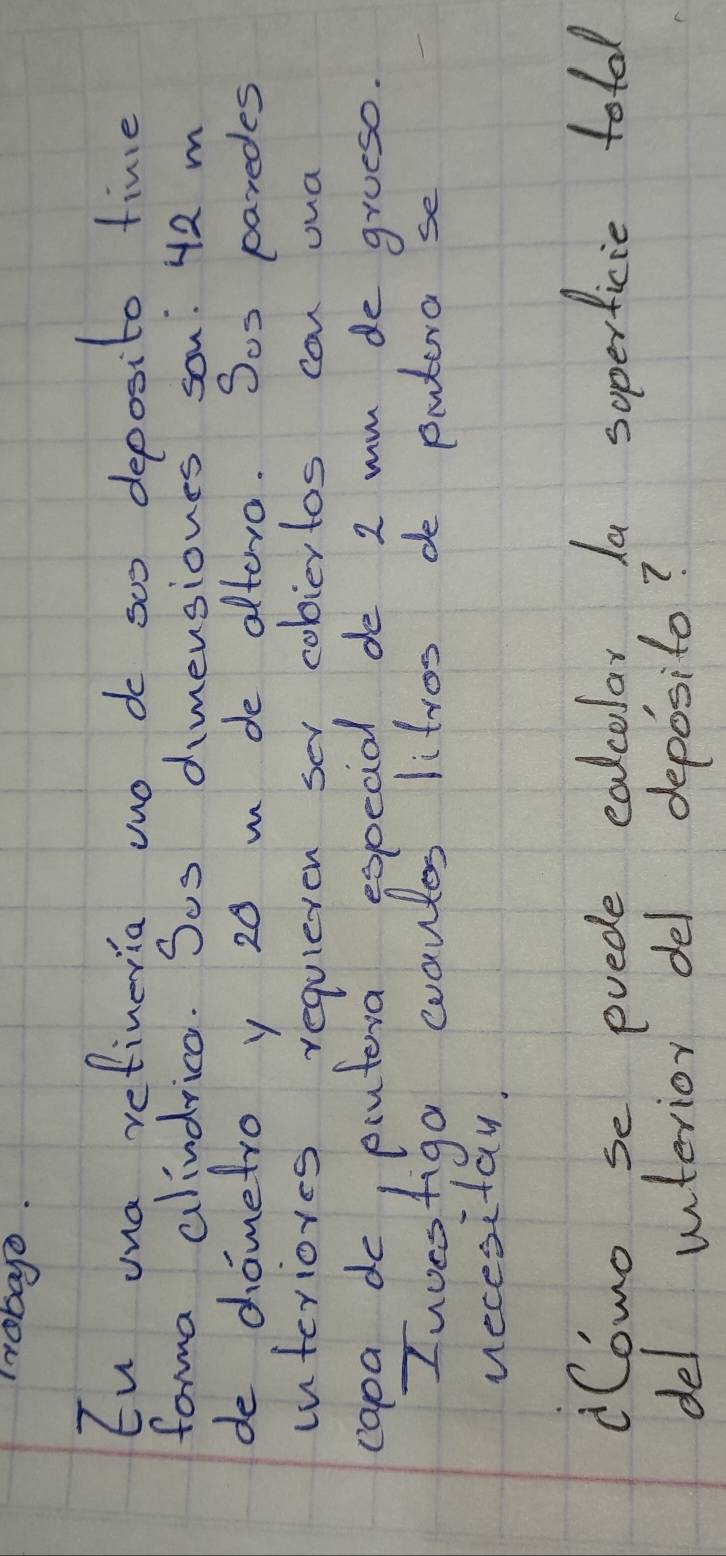 Trabajo.
En una refinería uno de sus deposito tinie
forma cilíndrica. Sus dimensiones son: 42 m
de diámetro y 20 m de altura. Sus paredes
interiores requieren ser cubiertos con una
capa de pintura especial de 2 mm de grueso.
Investiga cuantos litros de pintura se
necesitan.
¿Cómo se puede calcular la superficie total
del interior del depósito?